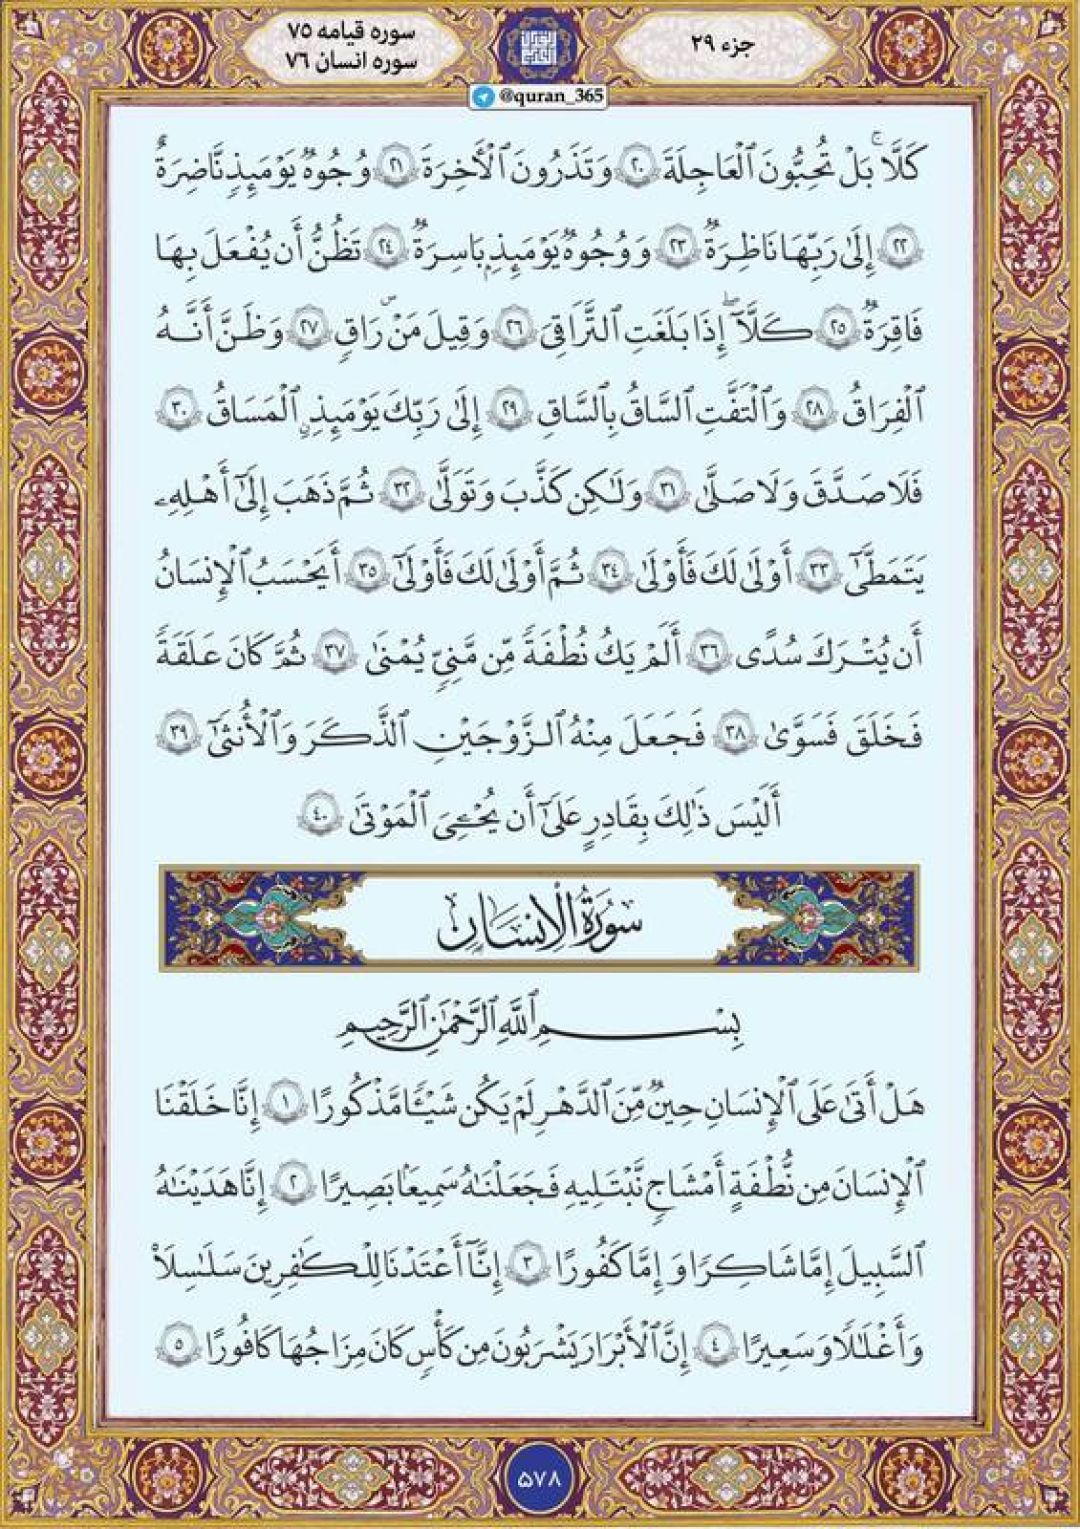 جزء ۲۹
سوره قیامه ۷۵
سوره انسان ۷۶
@quran_365
كَلَّا ۖ بَلْ تُحِبُّونَ ٱلْعَاجِلَةَ ٢٠ وَتَذَرُونَ ٱلْأَخِرَةَ ٢١ وُجُوهٌ يَوْمَئِذٍ نَّاضِرَةٌ
٢٢ إِلَىٰ رَبِّهَا نَاظِرَةٌ ٢٣ وَوُجُوهٌ يَوْمَئِذٍ بَاسِرَةٌ ٢٤ تَظُنُّ أَن يُفْعَلَ بِهَا
فَاقِرَةٌ ٢٥ كَلَّآ إِذَا بَلَغَتِ ٱلتَّرَاقِيَ ٢٦ وَقِيلَ مَنْ ۜ رَاقٍ ٢٧ وَظَنَّ أَنَّهُ
ٱلْفِرَاقُ ٢٨ وَٱلْتَفَّتِ ٱلسَّاقُ بِٱلسَّاقِ ٢٩ إِلَىٰ رَبِّكَ يَوْمَئِذٍ ٱلْمَسَاقُ ٣٠
فَلَا صَدَّقَ وَلَا صَلَّىٰ ٣١ وَلَٰكِن كَذَّبَ وَتَوَلَّىٰ ٣٢ ثُمَّ ذَهَبَ إِلَىٰٓ أَهْلِهِۦ
يَتَمَطَّىٰٓ ٣٣ أَوْلَىٰ لَكَ فَأَوْلَىٰ ٣٤ ثُمَّ أَوْلَىٰ لَكَ فَأَوْلَىٰٓ ٣٥ أَيَحْسَبُ ٱلْإِنسَانُ
أَن يُتْرَكَ سُدًى ٣٦ أَلَمْ يَكُ نُطْفَةً مِّن مَّنِيٍّ يُمْنَىٰ ٣٧ ثُمَّ كَانَ عَلَقَةً
فَخَلَقَ فَسَوَّىٰ ٣٨ فَجَعَلَ مِنْهُ ٱلزَّوْجَيْنِ ٱلذَّكَرَ وَٱلْأُنثَىٰٓ ٣٩
أَلَيْسَ ذَٰلِكَ بِقَادِرٍ عَلَىٰٓ أَن يُحْۦِيَ ٱلْمَوْتَىٰ ٤٠
سُورَةُ الْإِنسَانِ
بِسْمِ ٱللَّهِ ٱلرَّحْمَٰنِ ٱلرَّحِيمِ
هَلْ أَتَىٰ عَلَى ٱلْإِنسَانِ حِينٌ مِّنَ ٱلدَّهْرِ لَمْ يَكُن شَيْـًٔا مَّذْكُورًا ١ إِنَّا خَلَقْنَا
ٱلْإِنسَانَ مِن نُّطْفَةٍ أَمْشَاجٍ نَّبْتَلِيهِ فَجَعَلْنَاهُ سَمِيعًا بَصِيرًا ٢ إِنَّا هَدَيْنَاهُ
ٱلسَّبِيلَ إِمَّا شَاكِرًا وَإِمَّا كَفُورًا ٣ إِنَّآ أَعْتَدْنَا لِلْكَٰفِرِينَ سَلَٰسِلَا۟
وَأَغْلَٰلًا وَسَعِيرًا ٤ إِنَّ ٱلْأَبْرَارَ يَشْرَبُونَ مِن كَأْسٍ كَانَ مِزَاجُهَا كَافُورًا ٥
۵۷۸